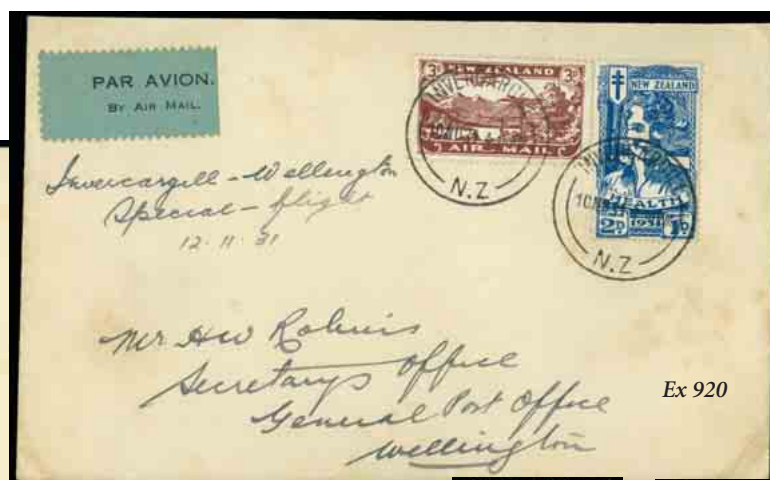 PAR AVION.
BY AIR MAIL.
3D NEW ZEALAND 3D
AIR-MAIL
INVERCARGILL
N.Z
NEW ZEALAND
HEALTH
2D 1931 1D
INVERCARGILL
N.Z
Invercargill - Wellington
Special - flight
12.11.31
Mr HW Robins
Secretarys Office
General Post Office
Wellington
Ex 920